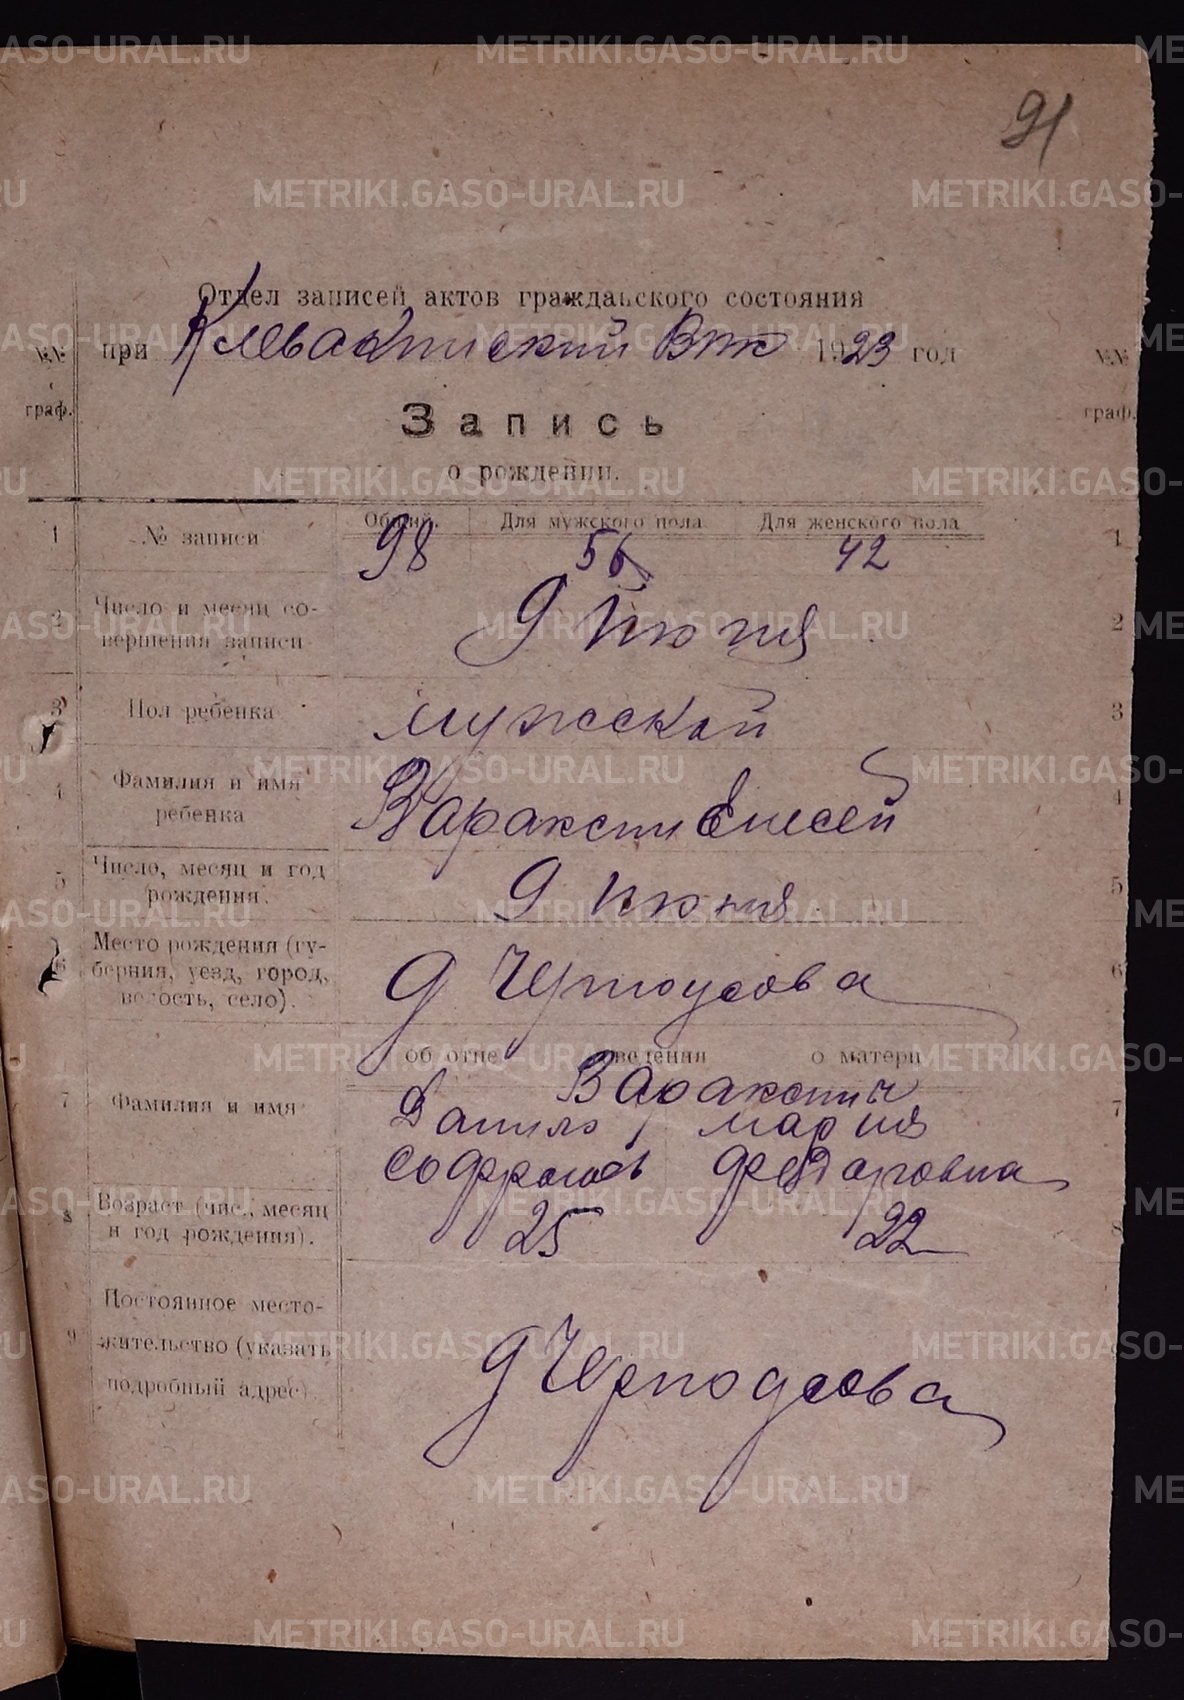 91
Отдел записей актов гражданского состояния
при Клевакинский Вик 1923 год
№№ граф.
№№ граф.
Запись
о рождении.
1 № записи Общий. Для мужского пола Для женского пола 1
98 56 42
2 Число и месяц со- 2
вершения записи 9 Июня
3 Пол ребенка мужской 3
4 Фамилия и имя 4
ребенка Вараксин Елисей
5 Число, месяц и год 5
рождения. 9 июня
6 Место рождения (гу- 6
берния, уезд, город, д Черноусова
волость, село).
об отце сведения о матери
Вараксины
7 Фамилия и имя Данило мария 7
Софронов Федаровна
8 Возраст (чис., месяц 8
и год рождения). 25 22
Постоянное место-
9 жительство (указать
подробный адрес) д Черноусова
METRIKI.GASO-URAL.RU